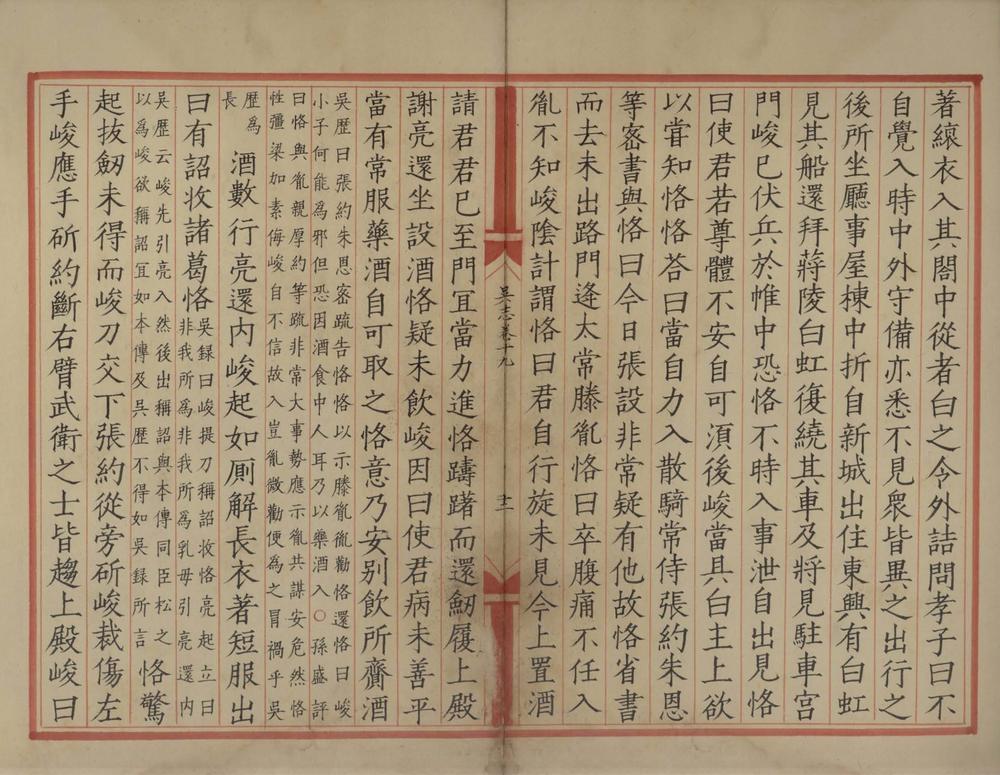 著縗衣入其閤中從者白之令外詰問孝子曰不
自覺入時中外守備亦悉不見衆皆異之出行之
後所坐廳事屋棟中折自新城出住東興有白虹
見其船還拜蔣陵白虹復繞其車及將見駐車宮
門峻已伏兵於帷中恐恪不時入事泄自出見恪
曰使君若尊體不安自可湏後峻當具白主上欲
以甞知恪恪荅曰當自力入散騎常侍張約朱恩
等宻書與恪曰今日張設非常疑有他故恪省書
而去未出路門逢太常滕胤恪曰卒腹痛不任入
胤不知峻隂計謂恪曰君自行旋未見今上置酒
吳志卷十九
十二
請君君已至門冝當力進恪躊躇而還劒履上殿
謝亮還坐設酒恪疑未飲峻因曰使君病未善平
當有常服藥酒自可取之恪意乃安别飲所齎酒
吳歷曰張約朱恩宻疏告恪恪以示滕胤胤勸恪還恪曰峻
小子何能為邪但恐因酒食中人耳乃以藥酒入○孫盛評
曰恪與胤親厚約等疏非常大事勢應示胤共謀安危然恪
性彊梁加素侮峻自不信故入豈胤微勸便為之冐禍乎吳
歷為
長
酒數行亮還内峻起如厠解長衣著短服出
曰有詔收諸葛恪
吳録曰峻提刀稱詔收恪亮起立曰
非我所為非我所為乳母引亮還内
吳歷云峻先引亮入然後出稱詔與本傳同臣松之
以為峻欲稱詔冝如本傳及吳歷不得如吳録所言
恪驚
起拔劒未得而峻刀交下張約從旁斫峻裁傷左
手峻應手斫約斷右臂武衛之士皆趨上殿峻曰